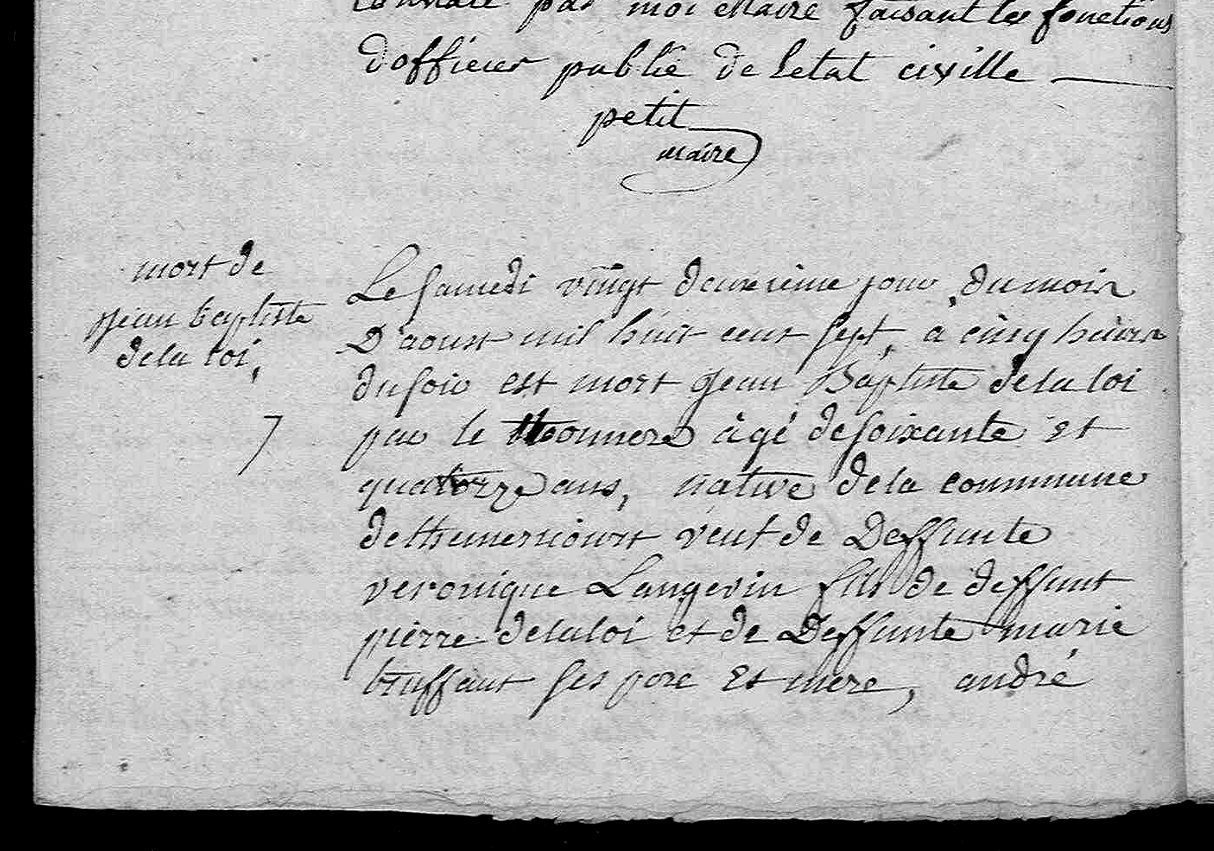 constaté par moi Maire faisant les fonctions
Dofficier public de letat civille
petit
maire
mort de
jean baptiste
dela loi,
7
Le samedi vingt deuxieme jour du mois
D'aoust mil huit cent sept, a cinq heures
du soir est mort jean Baptiste dela loi
par le tonnere âgé de soixante et
quatorze ans, native dela commune
de themericourt veuf de Deffunte
veronique Langevin fils de deffunt
pierre dela loi et de Deffunte marie
truffaut ses pere et mere, andré